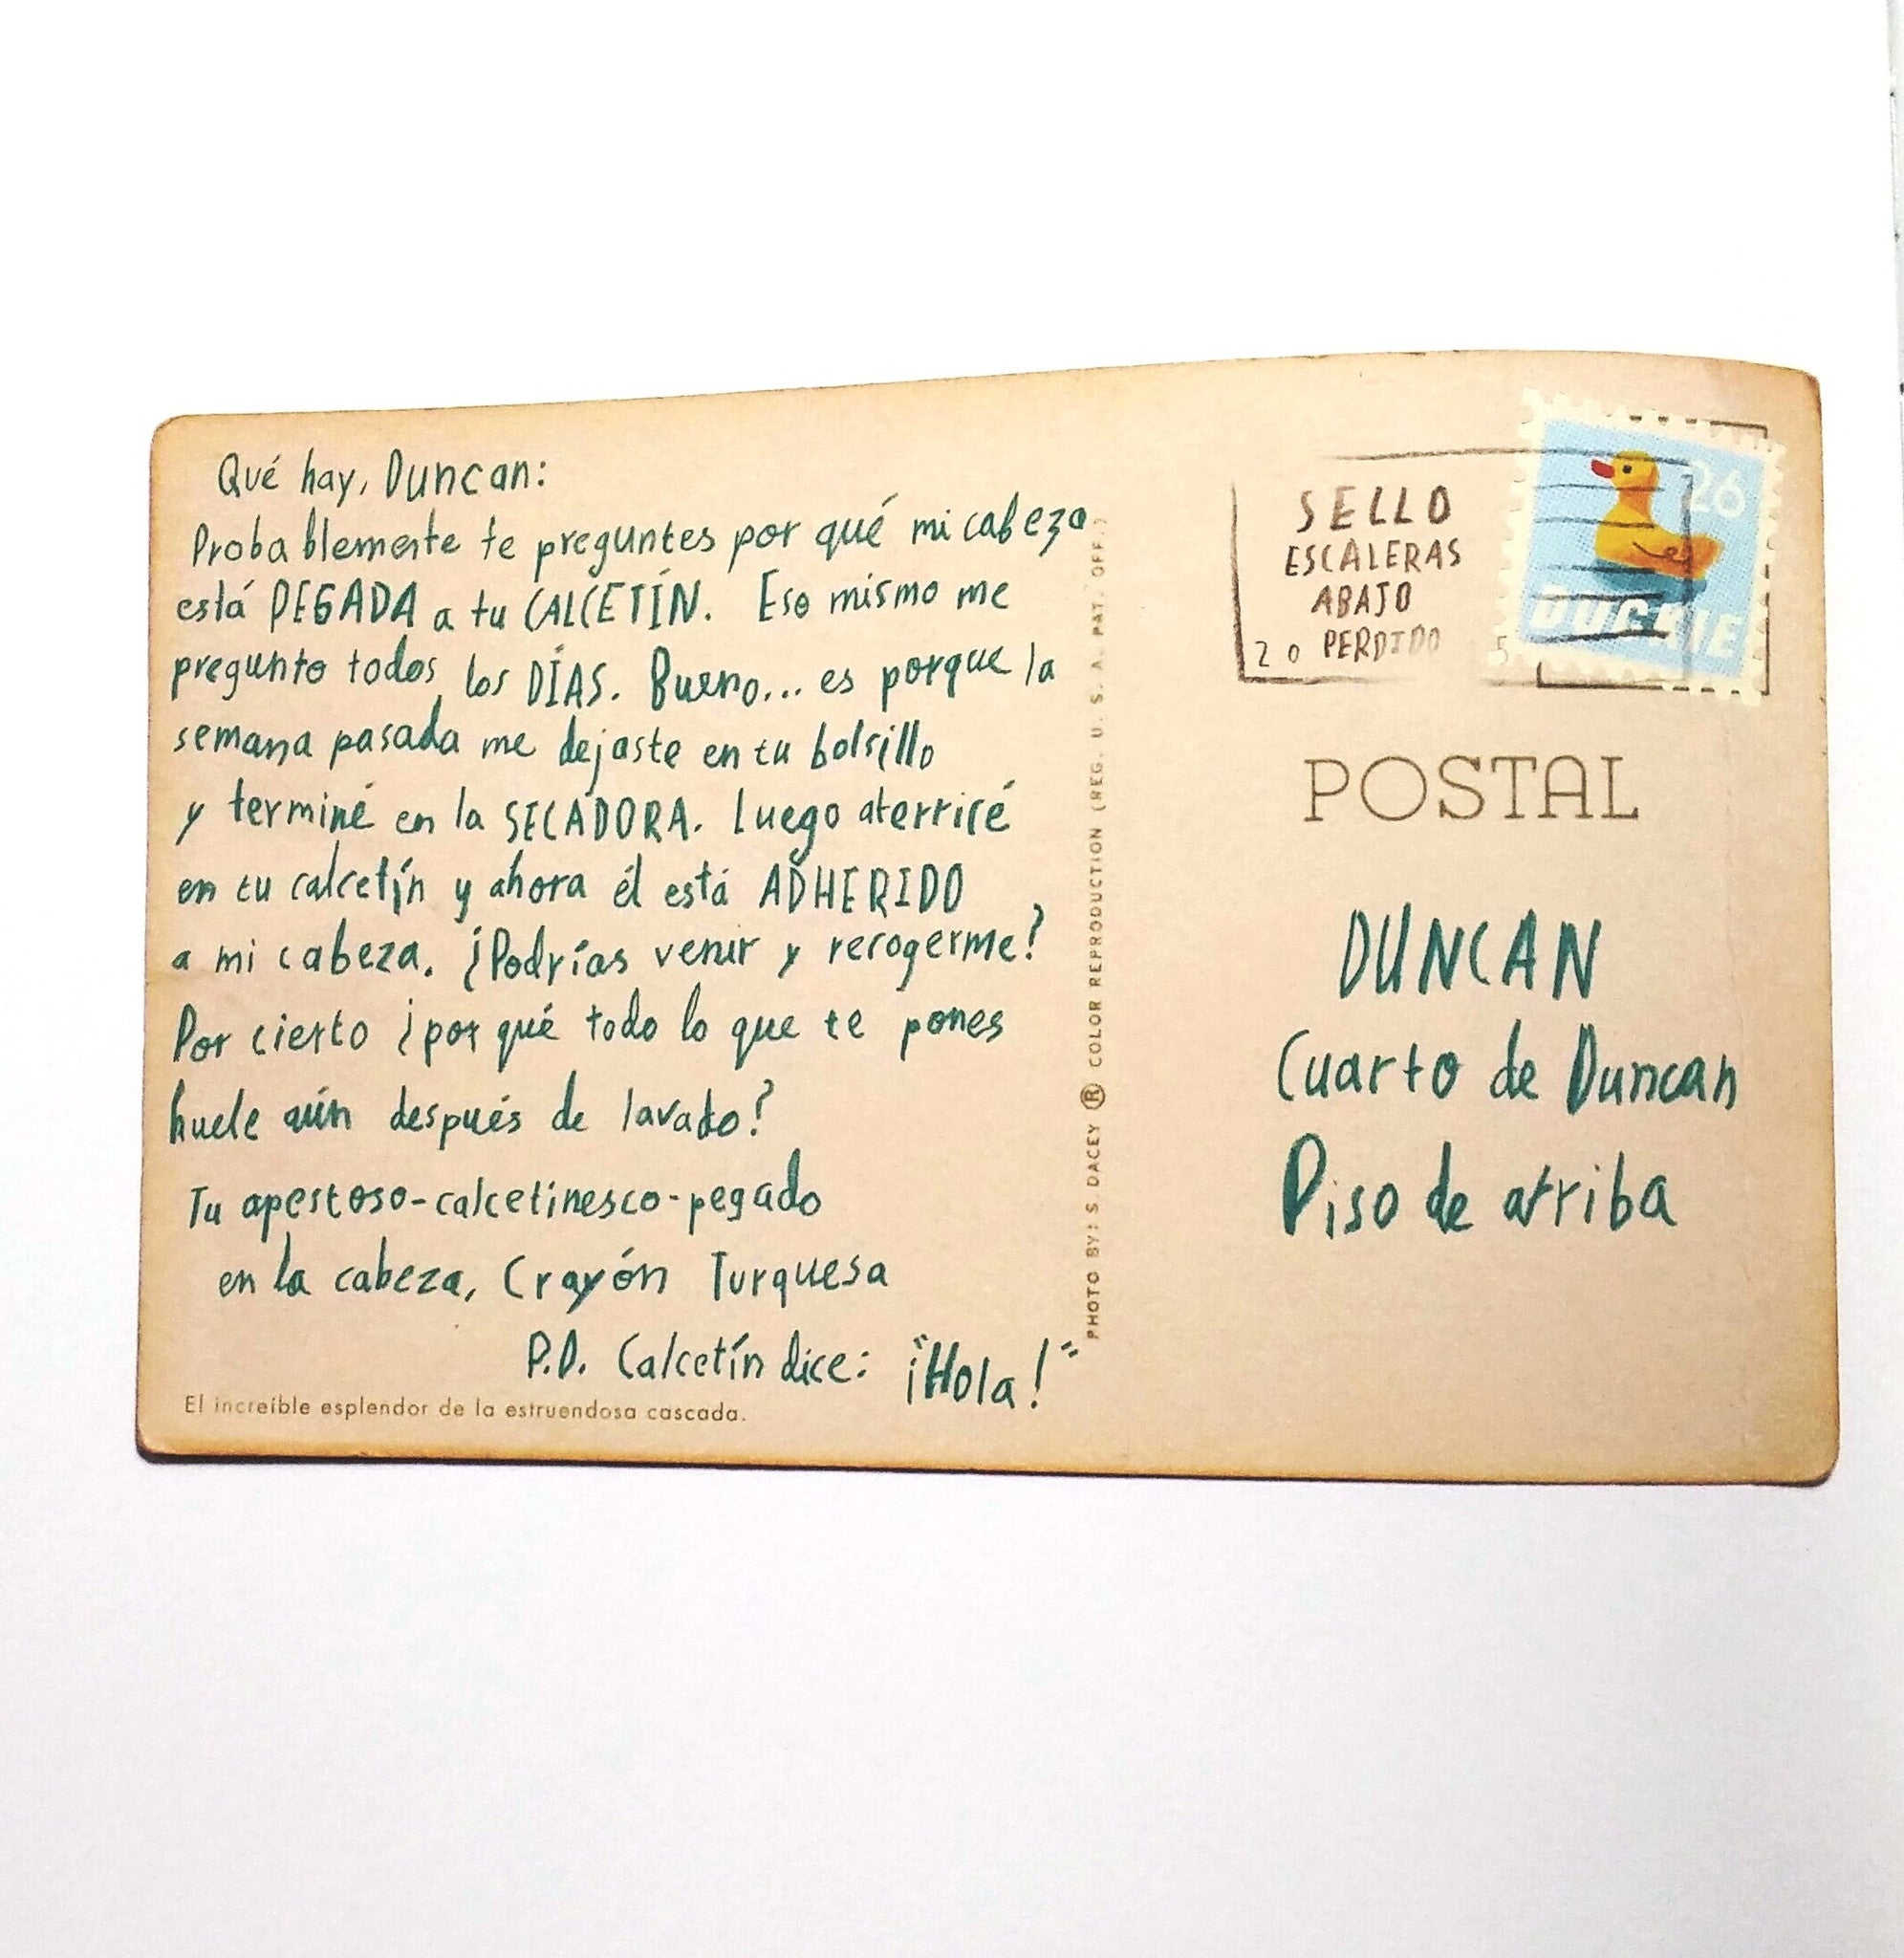 Qué hay, Duncan:
Probablemente te preguntes por qué mi cabeza
está PEGADA a tu CALCETÍN. Eso mismo me
pregunto todos los DÍAS. Bueno... es porque la
semana pasada me dejaste en tu bolsillo
y terminé en la SECADORA. Luego aterricé
en tu calcetín y ahora él está ADHERIDO
a mi cabeza. ¿Podrías venir y recogerme?
Por cierto ¿por qué todo lo que te pones
huele aún después de lavado?
Tu apestoso-calcetinesco-pegado
en la cabeza, Crayón Turquesa
P.D. Calcetín dice: "¡Hola!"
El increíble esplendor de la estruendosa cascada.
PHOTO BY: S DACEY ® COLOR REPRODUCTION (REG. U. S. A. PAT. OFF.)
SELLO
ESCALERAS
ABAJO
PERDIDO
20 5
26
DUCKIE
POSTAL
DUNCAN
Cuarto de Duncan
Piso de arriba